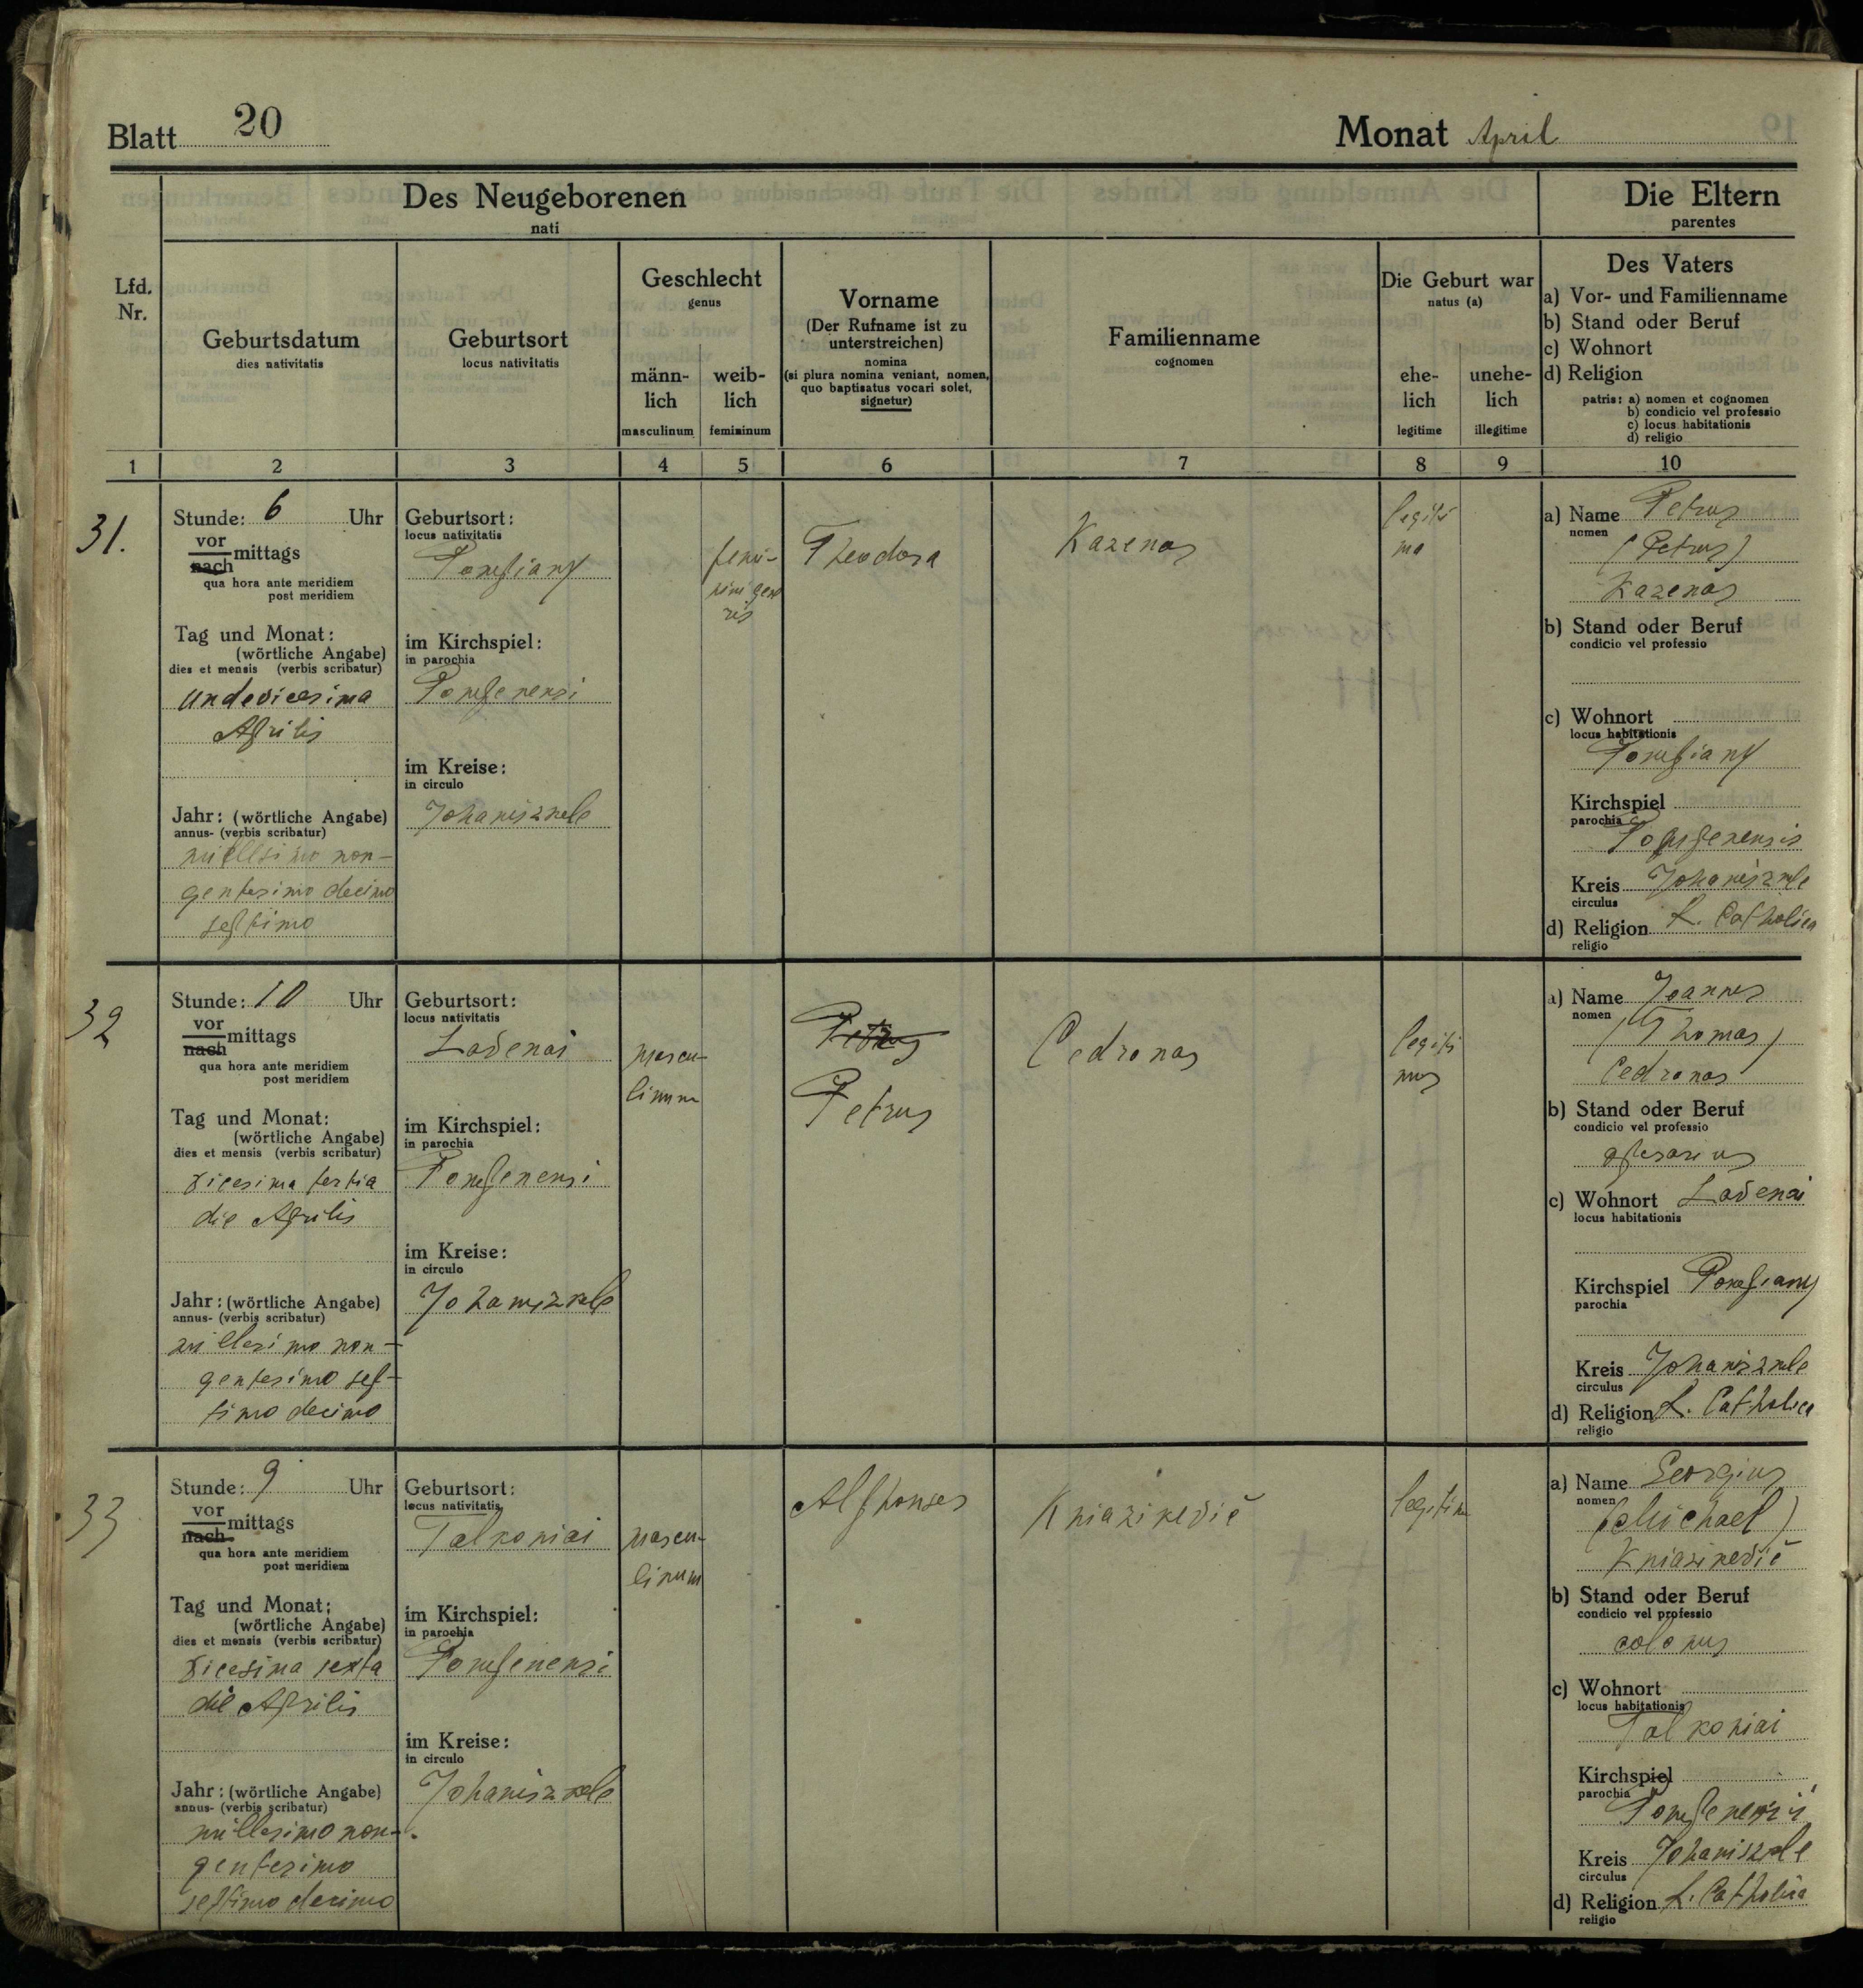 Blatt 20
Monat April
Des Neugeborenen
nati
Die Eltern
parentes
Lfd.
Nr.
Geburtsdatum
dies nativitatis
Geburtsort
locus nativitatis
Geschlecht
genus
männ-
lich
masculinum
weib-
lich
femininum
Vorname
(Der Rufname ist zu
unterstreichen)
nomina
(si plura nomina veniant, nomen,
quo baptisatus vocari solet,
signetur)
Familienname
cognomen
Die Geburt war
natus (a)
ehe-
lich
legitime
unehe-
lich
illegitime
Des Vaters
a) Vor- und Familienname
b) Stand oder Beruf
c) Wohnort
d) Religion
patris: a) nomen et cognomen
b) condicio vel professio
c) locus habitationis
d) religio
1 2 3 4 5 6 7 8 9 10
31.
Stunde: 6 Uhr
vor
nach mittags
qua hora ante meridiem
post meridiem
Tag und Monat:
(wörtliche Angabe)
dies et mensis (verbis scribatur)
undevicesima
Aprilis
Jahr: (wörtliche Angabe)
annus- (verbis scribatur)
millesimo non-
gentesimo decimo
septimo
Geburtsort:
locus nativitatis
im Kirchspiel:
in parochia
im Kreise:
in circulo
Johaniszkele
femi-
nini gene
ris
Theodora
Kazenas
legiti
ma
a) Name Petrus
nomen
(Petrus)
Kazenas
b) Stand oder Beruf
condicio vel professio
c) Wohnort
locus habitationis
Kirchspiel
parochia
Kreis Johaniszkele
circulus
d) Religion R. Catholica
religio
32
Stunde: 10 Uhr
vor
nach mittags
qua hora ante meridiem
post meridiem
Tag und Monat:
(wörtliche Angabe)
dies et mensis (verbis scribatur)
vicesima tertia
die Aprilis
Jahr: (wörtliche Angabe)
annus- (verbis scribatur)
millesimo non-
gentesimo sep-
timo decimo
Geburtsort:
locus nativitatis
Ladenai
im Kirchspiel:
in parochia
im Kreise:
in circulo
Johaniszkele
mascu-
linum
Petrus
Petrus
Cedronas
legiti
mus
a) Name Joannes
nomen
(Thomas)
Cedronas
b) Stand oder Beruf
condicio vel professio
operarius
c) Wohnort Ladenai
locus habitationis
Kirchspiel
parochia
Kreis Johaniszkele
circulus
d) Religion R. Catholica
religio
33
Stunde: 9 Uhr
vor
nach mittags
qua hora ante meridiem
post meridiem
Tag und Monat:
(wörtliche Angabe)
dies et mensis (verbis scribatur)
vicesima sexta
die Aprilis
Jahr: (wörtliche Angabe)
annus- (verbis scribatur)
millesimo non-
gentesimo
septimo decimo
Geburtsort:
locus nativitatis
Talkoniai
im Kirchspiel:
in parochia
im Kreise:
in circulo
Johaniszkele
mascu-
linum
Alphonses
Kniazikevič
legitim
a) Name Georgius
nomen
(Michael)
Kniazikevič
b) Stand oder Beruf
condicio vel professio
colonus
c) Wohnort
locus habitationis
Talkoniai
Kirchspiel
parochia
Kreis Johaniszkele
circulus
d) Religion R. Catholica
religio